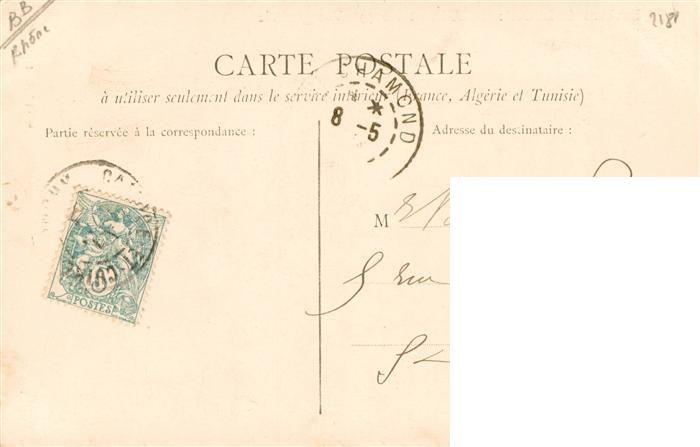 BB
Rhône
2181
CARTE POSTALE
à utiliser seulement dans le service intérieur (France, Algérie et Tunisie)
CHAMOND
8 -5
Partie réservée à la correspondance :
Adresse du destinataire :
M
5 rue
St
5
POSTES